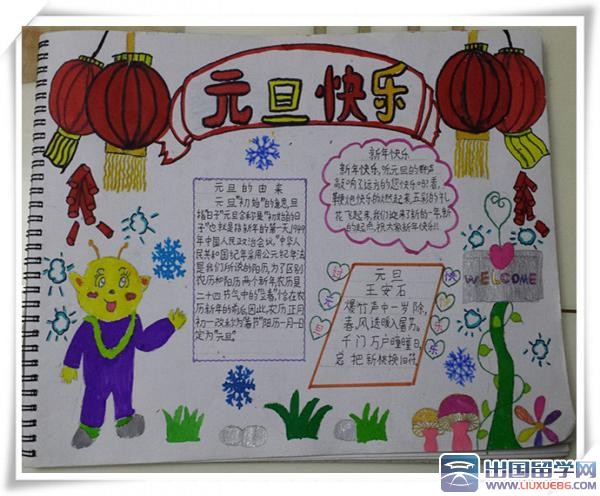 元旦快乐
元旦的由来
元旦"初始"的意思旦
指"日子"元旦合称是"初始的日
子"也就是指新年的第一天1949
年中国人民政治会议,"中华人
民共和国纪年采用公元纪年法
是我们所说的阳历,为了区别
农历和阳历两个新年,农历是
二十四节气中的"立春"恰在农
历新年的前后,因此,农历正月
初一改称为"春节"阳历一月一日
定为"元旦
新年快乐
新年快乐,听元旦的钟声
敲响了远方的您快乐吗?看,
鞭炮快乐的燃烧起来,五彩的礼
花飞起来,我们迎来了新的一年,新
的起点,祝大家新年快乐!!
元旦
王安石
爆竹声中一岁除,
春风送暖入屠苏。
千门万户曈曈日,
总把新桃换旧符。
过元旦
快快乐乐
WELCOME
出国留学网
WWW.LIUXUE86.COM